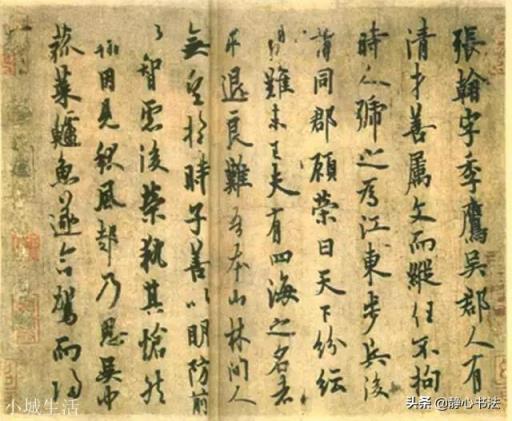 張翰字季鷹吳郡人有
清才善屬文而縱任不拘
時人號之為江東步兵後
謂同郡顧榮曰天下紛紜
禍難未已夫有四海之名者
求退良難吾本山林間人
無望於時子善以明防前
以智慮後榮執其愴然
翰因見秋風起乃思吳中
菰菜鱸魚遂命駕而歸
小城生活
头条 @静心书法